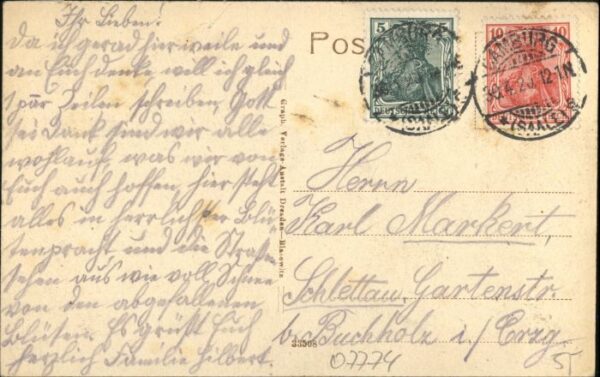 Ihr Lieben!
Da ich gerad hier weile und
an Euch denke, will ich gleich
1 par Zeilen schreiben, Gott
sei Dank sind wir alle
wohlauf, was wir von
Euch auch hoffen, hier steht
alles in herrlichster Blü-
tenpracht und die Straßen
sehen aus wie voll Schnee
von den abgefallenen
Blüten. Es grüßt Euch
herzlich Familie Hilbert.
Pos
5
10 10
CAMBURG
12-1N
* (SAALE)
Graph. Verlags-Anstalt Dresden-Blasewitz
Herrn
Karl Markert,
Schlettau, Gartenstr.
b. Buchholz i./Erzg.
33508
07774